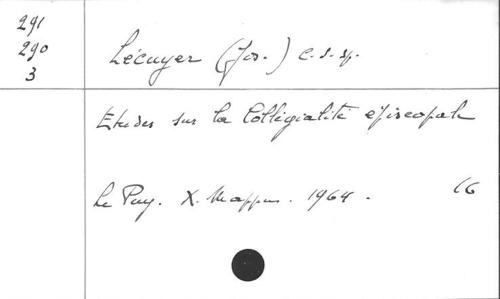 291
290
3
Lécuyer (Jos.) c.s.sp.
Etudes sur la Collégialité épiscopale
Le Puy. X. Mappus. 1964. 16